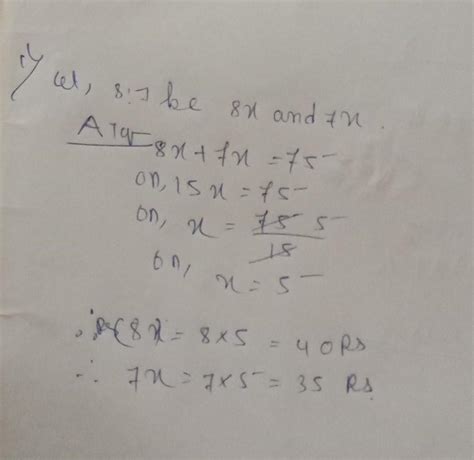 1) let, 8:7 be 8x and 7x.
ATQ
8x + 7x = 75
or, 15x = 75
or, x = 75 5
15
or, x = 5
∴ 8x = 8×5 = 40 Rs
∴ 7x = 7×5 = 35 Rs